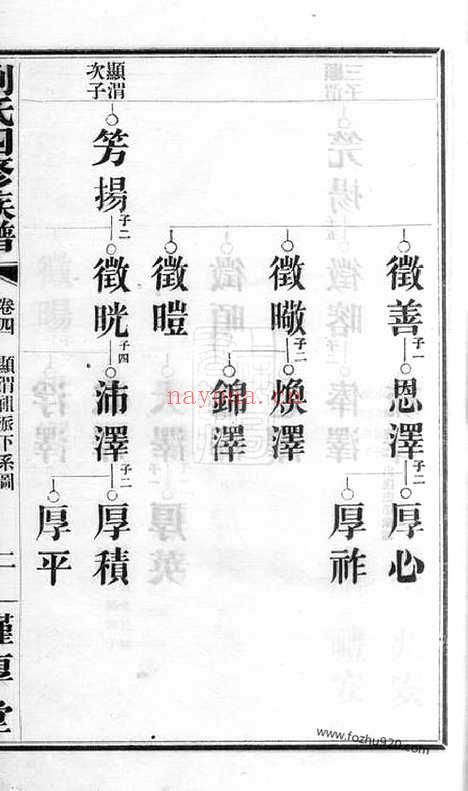 徵善 子一
恩澤 子二
厚心
厚祚
徵暾 子二
煥澤
錦澤
徵暟
顯渭次子
竻揚 子二
徵晄 子四
沛澤 子二
厚積
厚平
劉氏四修族譜
卷四
顯渭
派下系圖
二
堂
nayona.cn
www.fozhu920.com